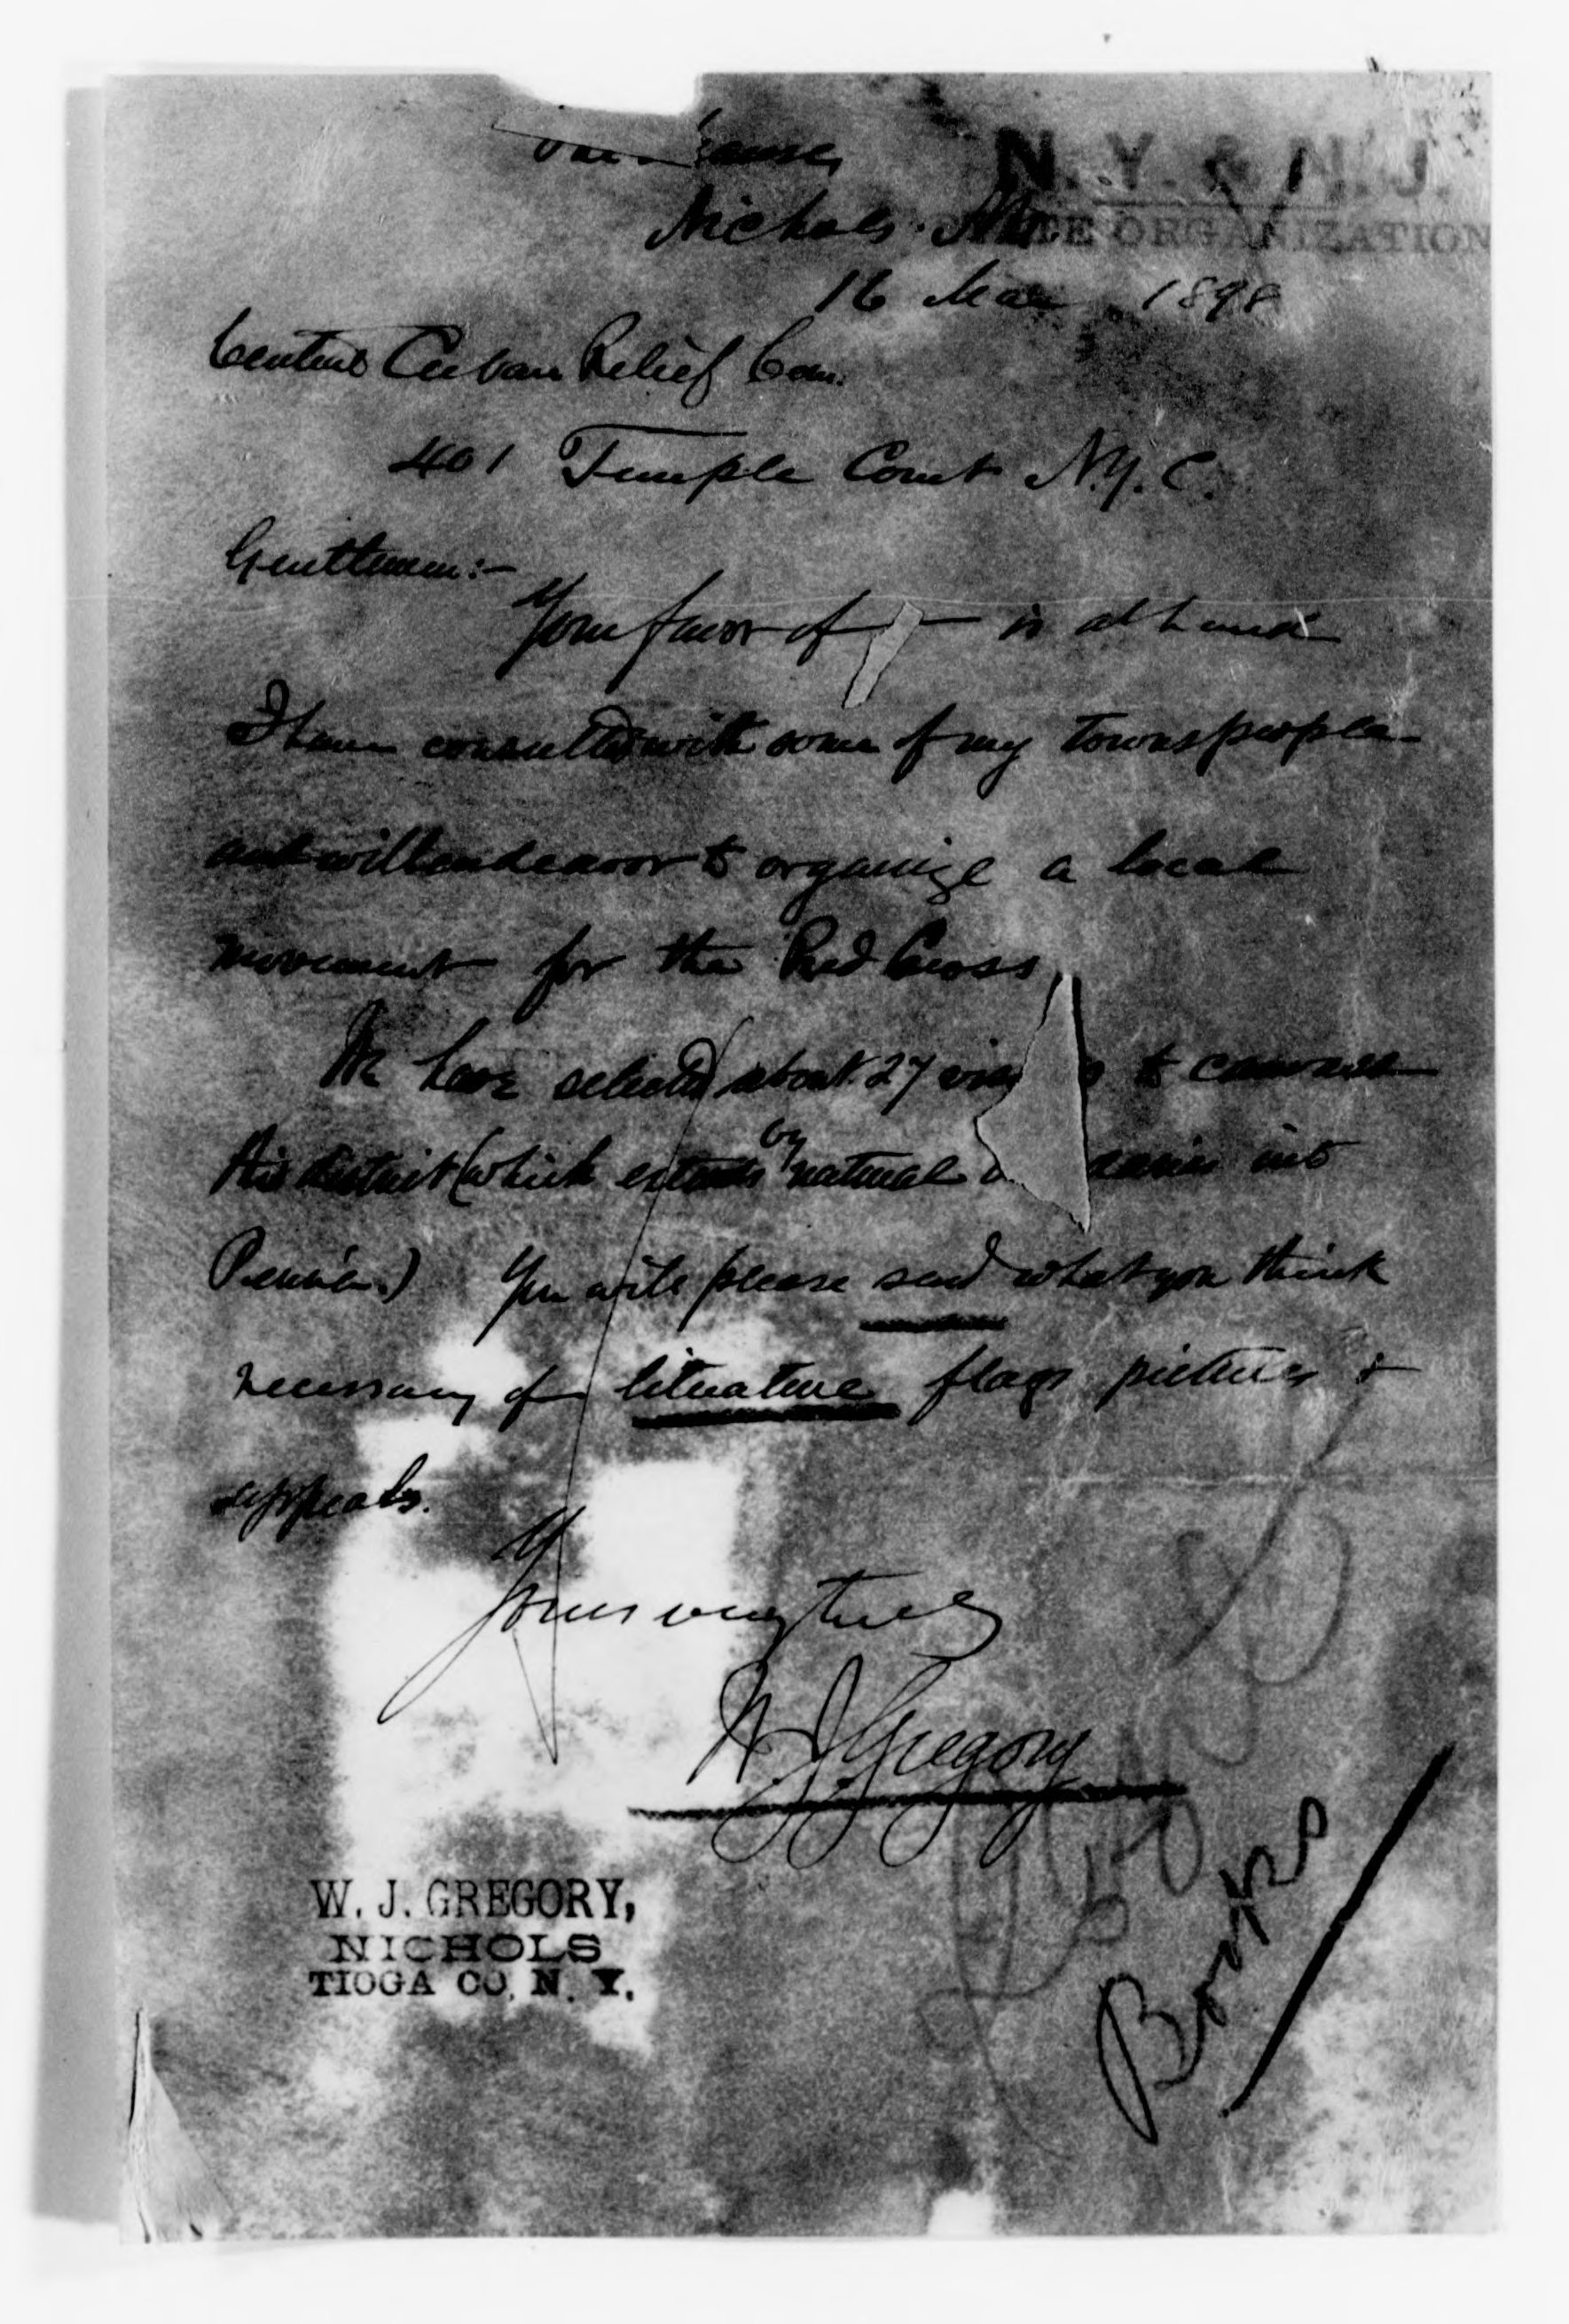 N. Y. & N. J.
STATE ORGANIZATION
Nichols. N.Y.
16 Mar 1898
Central Cuban Relief Com.
401 Temple Court N.Y.C.
Gentlemen:-
Your favor of — is at hand
I have consulted with some of my townspeople
and will endeavor to organize a local
movement for the Red Cross
We have selected about 27 to canvass
this district (which extends by natural into
Penn'a.) You will please send what you think
necessary of literature flags pictures +
appeals.
Yours very truly
W. J. Gregory
W. J. GREGORY,
NICHOLS
TIOGA CO. N. Y.